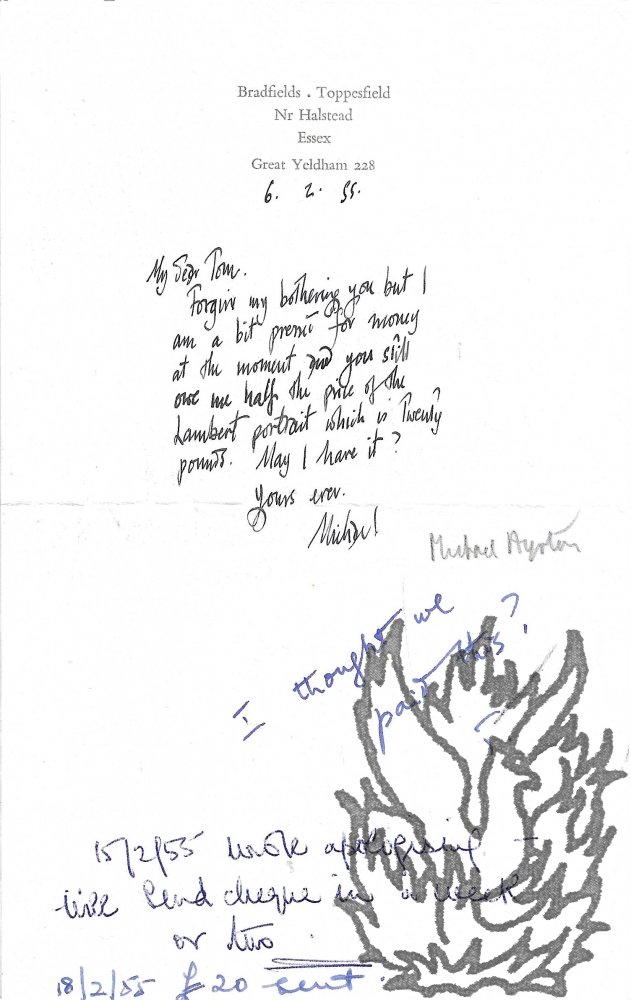 Bradfields . Toppesfield
Nr Halstead
Essex
Great Yeldham 228
6. 2. 55.
My Dear Tom.
Forgive my bothering you but I
am a bit pressé for money
at the moment and you still
owe me half the price of the
Lambert portrait which is Twenty
pounds. May I have it?
Yours ever.
Michael
Michael Ayrton
I thought we
paid this?
15/2/55 wrote apologising –
will send cheque in a week
or two.
18/2/55 £20 sent.